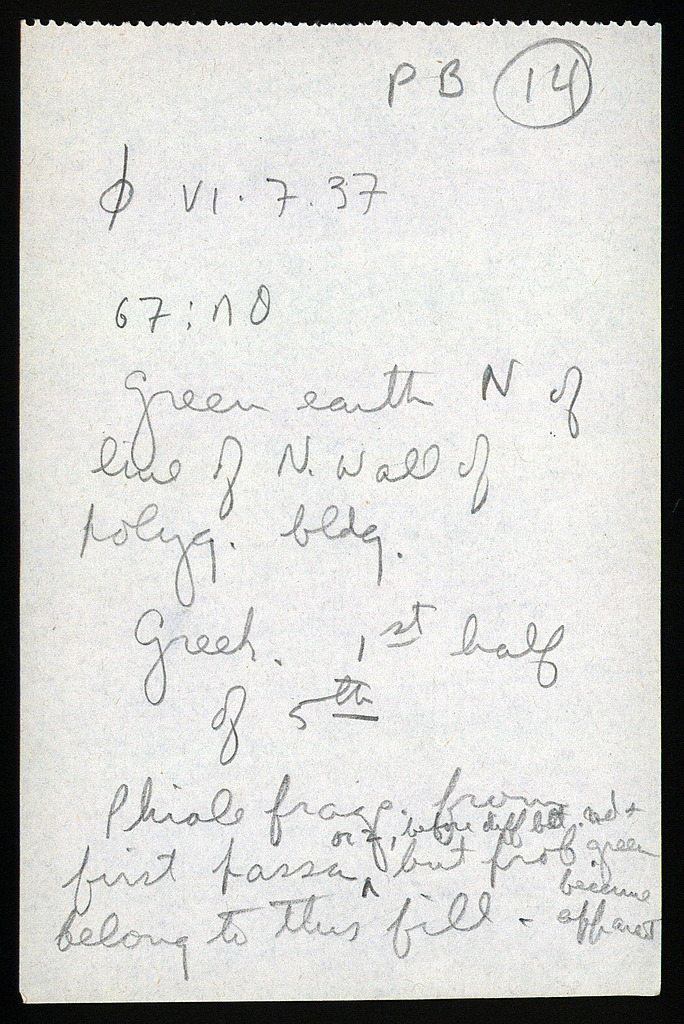 PB 14
φ VI.7.37
67:ΛΘ
Green earth N of
line of N. Wall of
polyg. bldg.
Greek. 1st half
of 5th
Phiale fragg. from
or 7, before diff bet. red +
first passa, but prob. green
became
belong to this fill - apparent